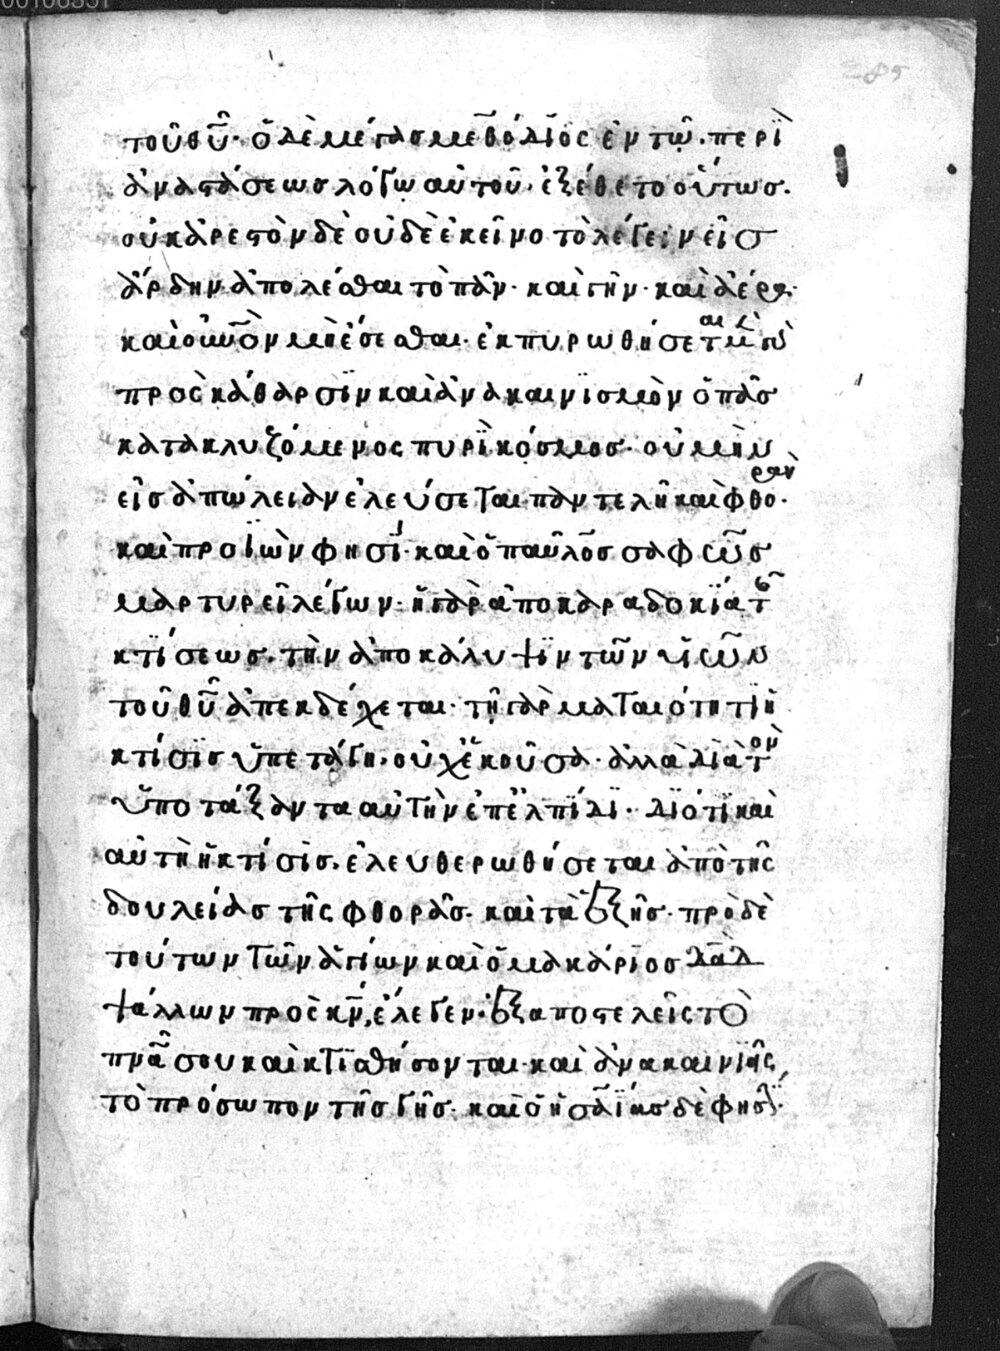 τοῦ θῦ· ὁ δὲ μέγας μεθόδιος ἐν τῶ περὶ
ἀναστάσεως λόγω αὐτοῦ· ἐξέθετο οὕτως.
οὐκ ἀρεστὸν δὲ οὐδὲ ἐκεῖνο τὸ λέγειν εἰς
ἄρδην ἀπολέσθαι τὸ πᾶν· καὶ γῆν· καὶ ἀέρα·
καὶ οὐνὸν μὴ ἔσεσθαι· ἐκπυρωθήσεται μὲν
πρὸς κάθαρσιν καὶ ἀνακαινισμὸν ὁ πᾶς
κατακλυζόμενος πυρὶ κόσμος· οὐ μὴν
εἰς ἀπώλειαν ἐλεύσεται παντελῆ καὶ φθοράν·
καὶ προϊὼν φησί· καὶ ὁ παῦλος σαφῶς
μαρτυρεῖ λέγων· ἡ γὰρ ἀποκαραδοκία τῆς
κτίσεως· τὴν ἀποκάλυψιν τῶν υἱῶν
τοῦ θῦ ἀπεκδέχεται· τῆ γὰρ ματαιότητι ἡ
κτίσις ὑπετάγη· οὐχ ἑκοῦσα· ἀλλὰ διὰ τὸν
ὑποτάξαντα αὐτὴν ἐπ' ἐλπίδι· διότι καὶ
αὐτὴ ἡ κτίσις· ἐλευθερωθήσεται ἀπὸ τῆς
δουλείας τῆς φθορᾶς· καὶ τὰ ἑξῆς· πρὸ δὲ
τούτων τῶν ἁγίων καὶ ὁ μακάριος δαδ
ψάλλων πρὸς κν, ἔλεγεν· ἐξαποστελεῖς τὸ
πνα σου καὶ κτισθήσονται· καὶ ἀνακαινιῆς,
τὸ πρόσωπον τῆς γῆς· καὶ ὁ ἡσαΐας δὲ φησί·